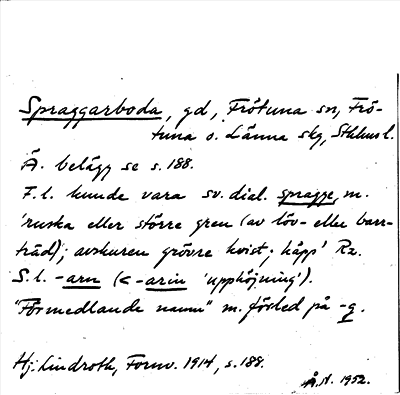 Spraggarboda, gd, Frötuna sn, Frö-
tuna o. Länna skg, Sthlms l.
Ä. belägg se s. 188.
F. l. kunde vara sv. dial. spragge, m.
'ruska eller större gren (av löv- eller barr-
träd); avskuren grövre kvist; käpp' Rz.
S. l. -arn (< -arin 'upphöjning').
"Förmedlande namn" m. förled på -a.
Hj. Lindroth, Fornv. 1914, s. 188.
Å.N. 1952.